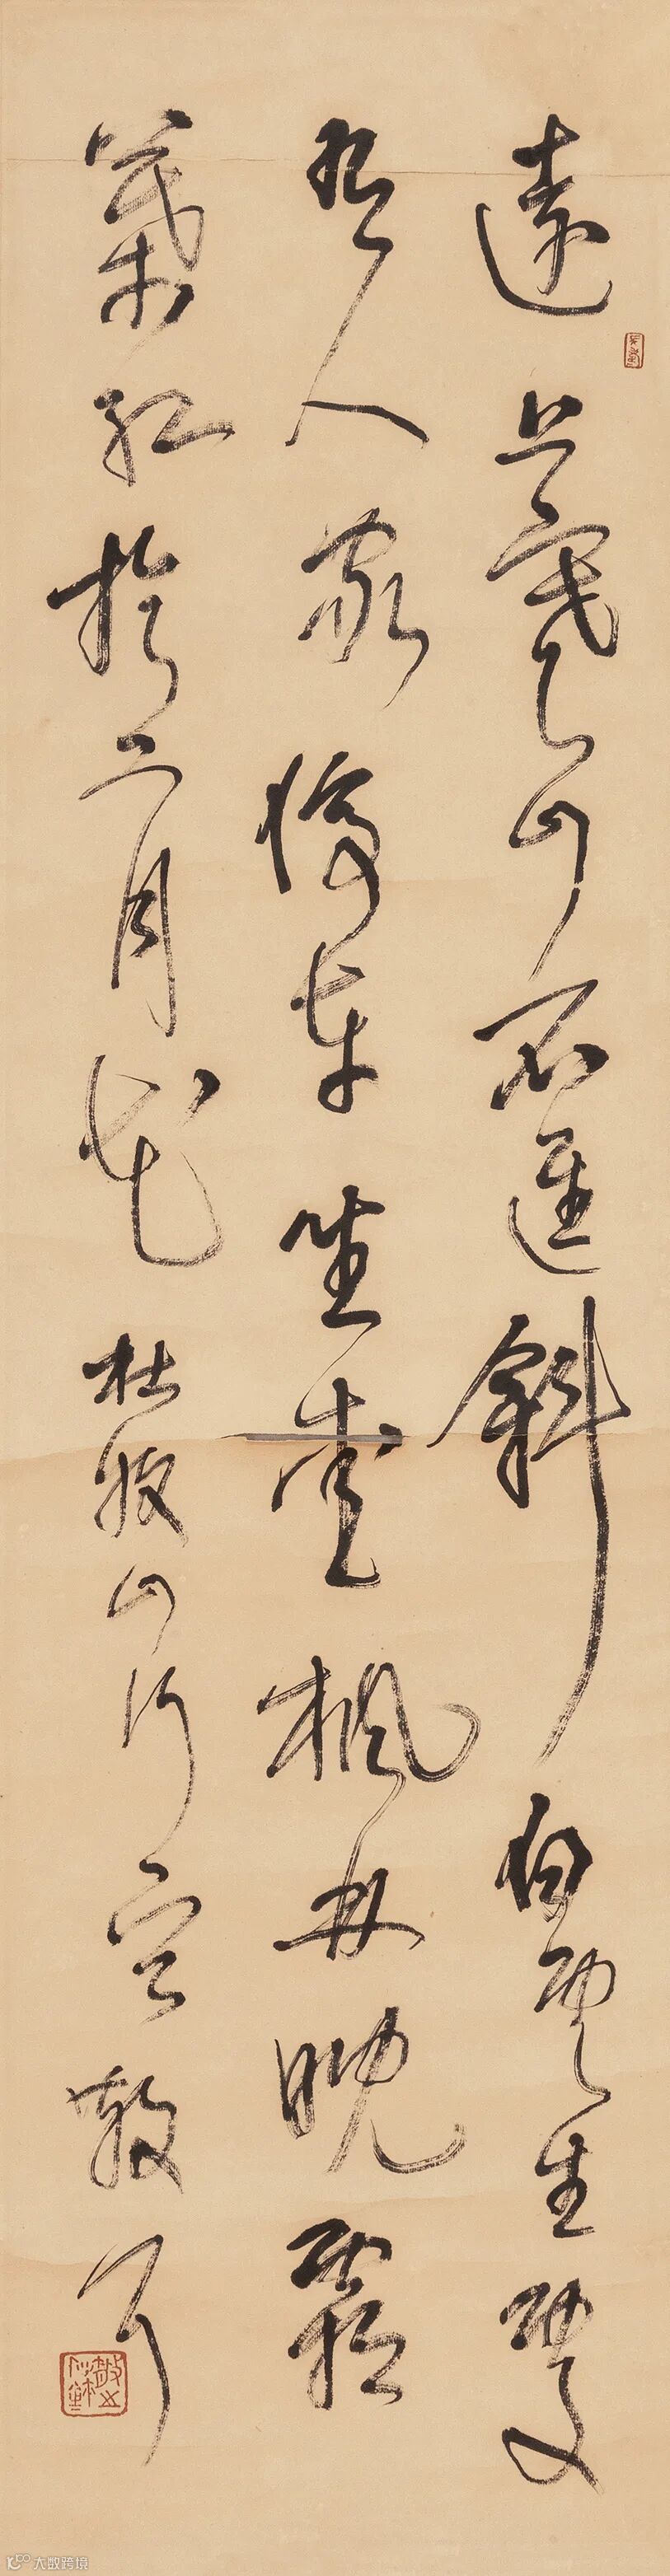 遠上寒山石逕斜白雲生處
有人家停車坐愛楓林晚霜
葉紅於二月花 杜牧山行 散耳
大数跨境